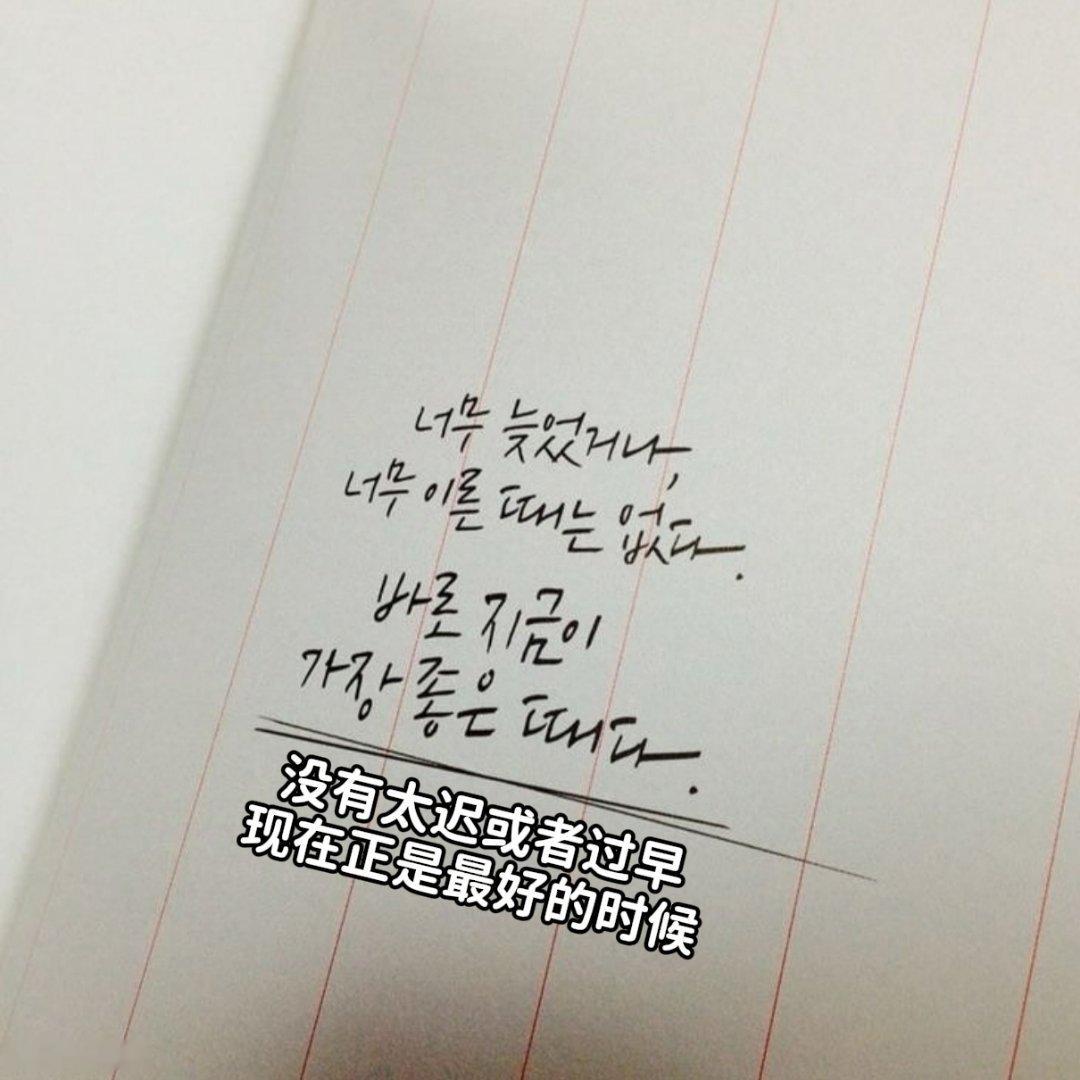 너무 늦었거나,
너무 이른 때는 없다.
바로 지금이
가장 좋은 때다.
没有太迟或者过早
现在正是最好的时候